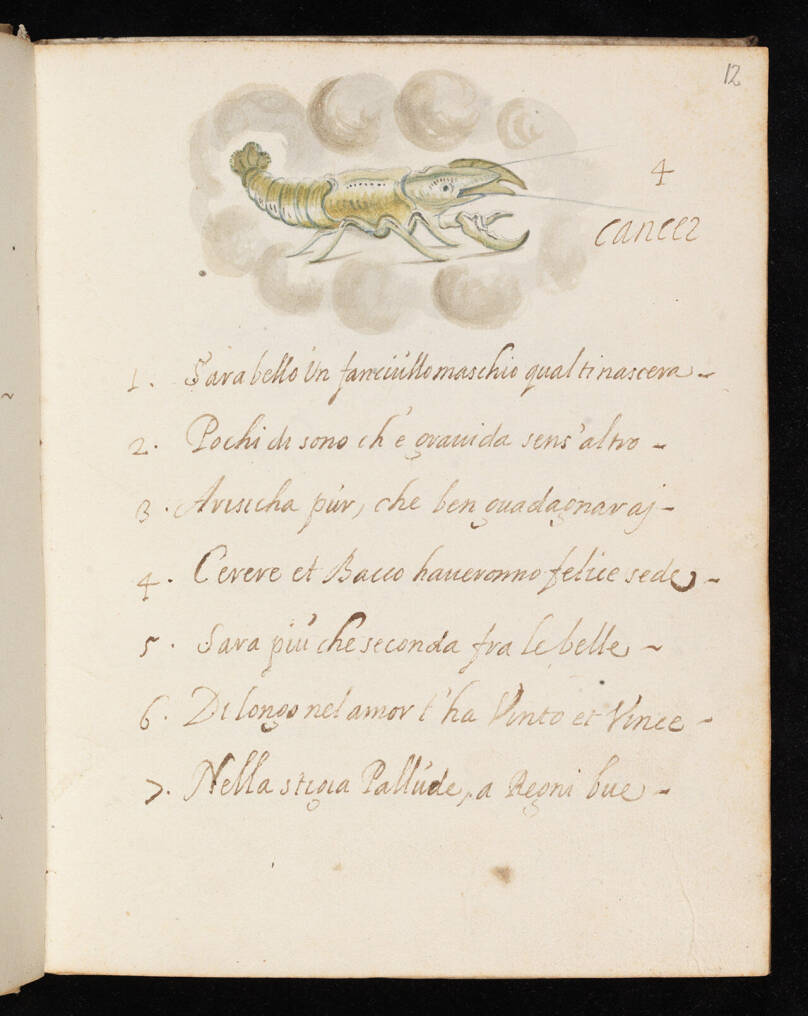 12
4
cancer
1. Sara bello Un fanciullo maschio qual ti nascera ~
2. Pochi di sono ch'è gravida sens' altro ~
3. Arisicha pur, che ben guadagnaraj ~
4. Cerere et Bacco haveronno felice sede ~
5. Sara più che seconda fra le belle ~
6. Di longo nel amor t'ha Vinto et Vince ~
7. Nella stigia Pallude, a Regni bue ~